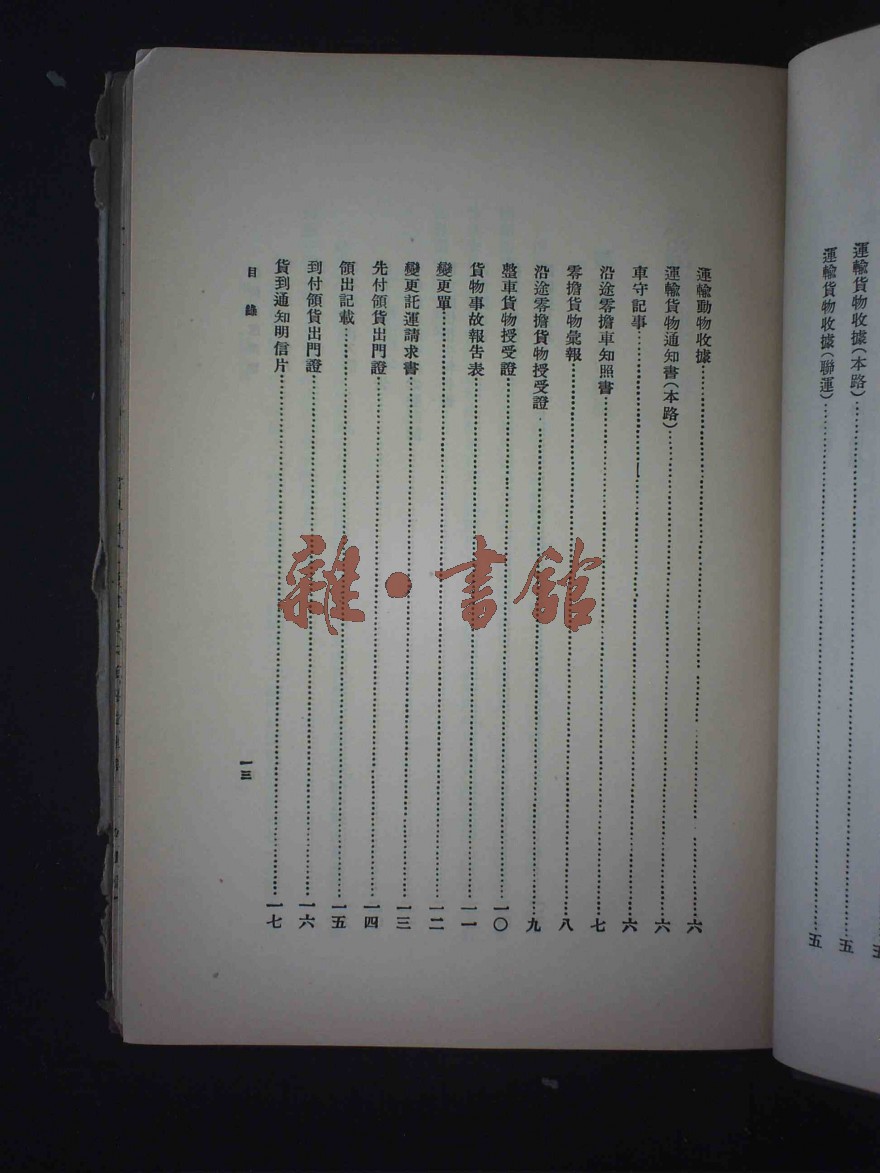 運輸貨物收據(本路)……五
運輸貨物收據(聯運)……五
運輸動物收據……六
運輸貨物通知書(本路)……六
車守記事……六
沿途零擔車知照書……七
零擔貨物彙報……八
沿途零擔貨物授受證……九
整車貨物授受證……一〇
貨物事故報告表……一一
變更單……一二
變更託運請求書……一三
先付領貨出門證……一四
領出記載……一五
到付領貨出門證……一六
貨到通知明信片……一七
目錄
一三
雜·書館